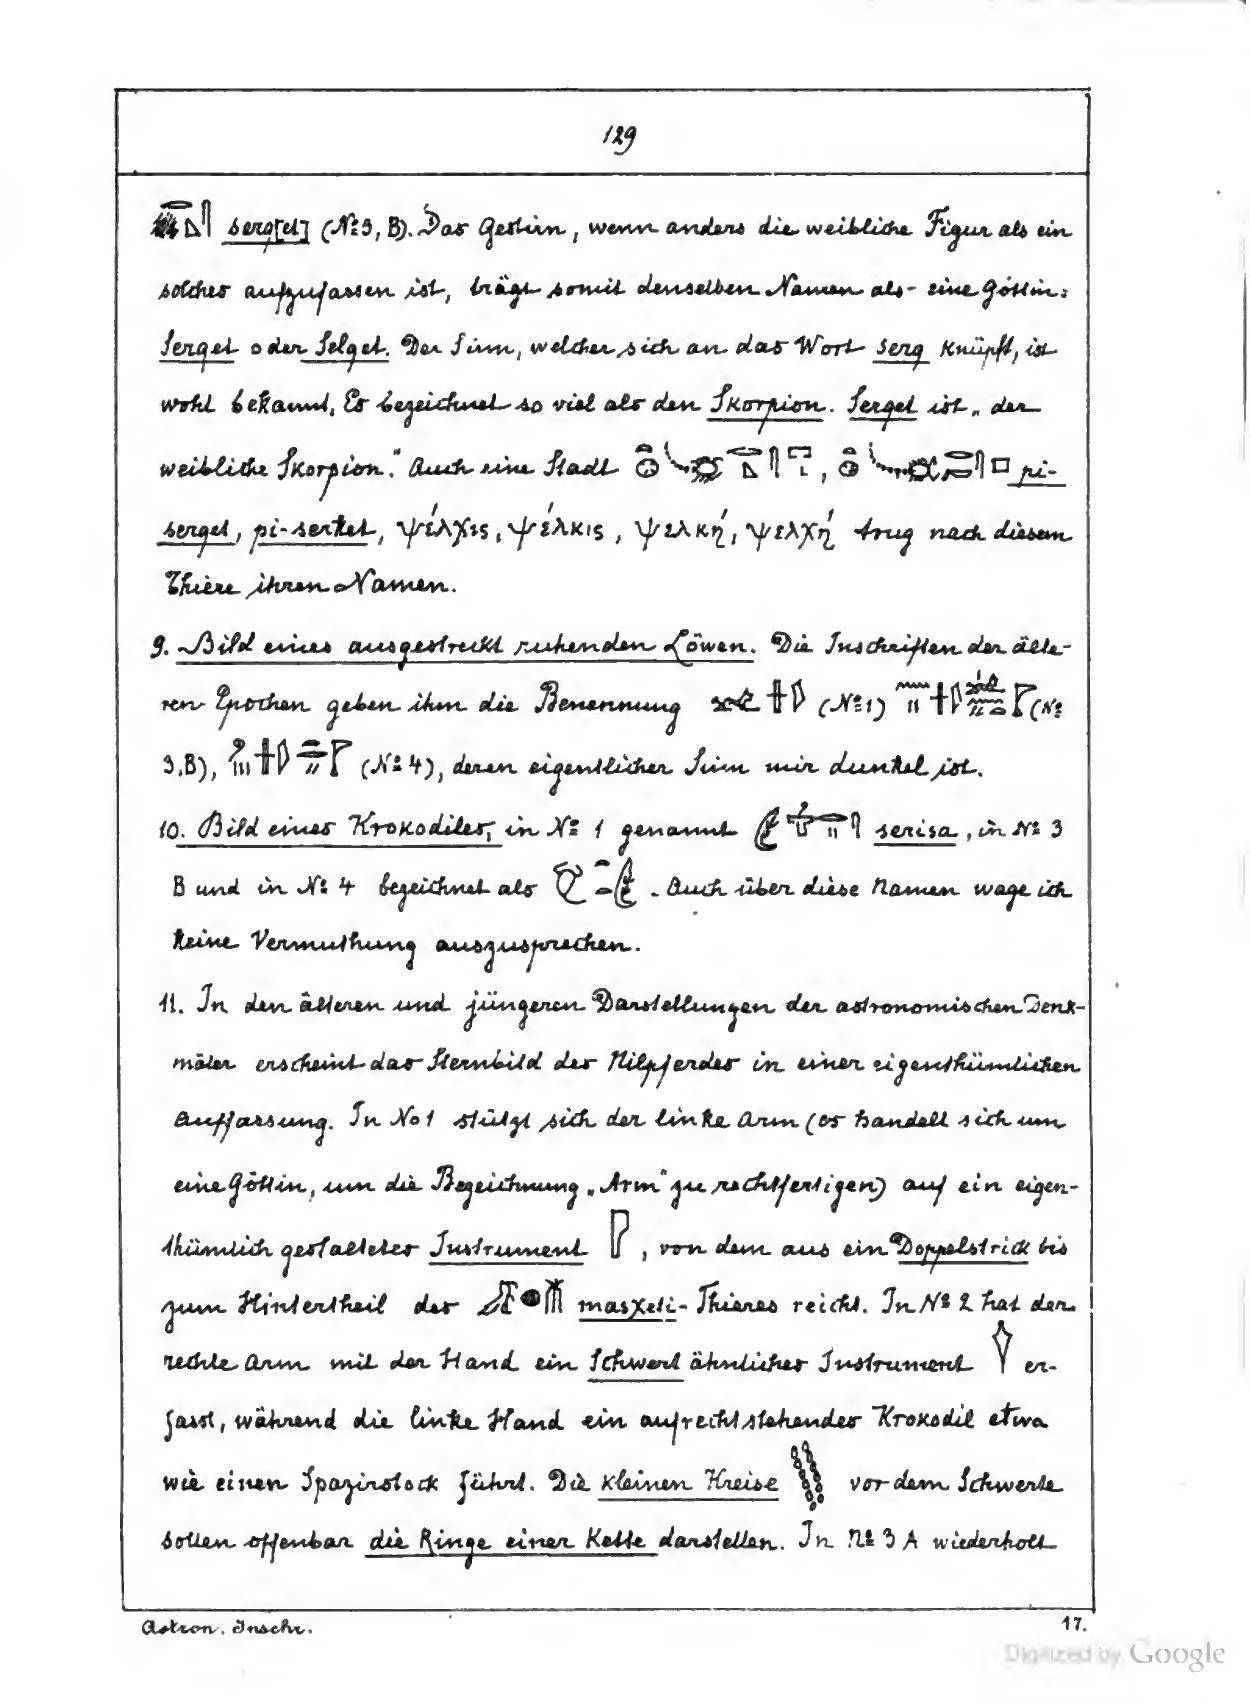 129
serq[et] (№ 3, B). Das Gestirn, wenn anders die weibliche Figur als ein
solches aufzufassen ist, trägt somit denselben Namen als eine Göttin:
Serqet oder Selqet. Der Sinn, welcher sich an das Wort serq knüpft, ist
wohl bekannt. Es bezeichnet so viel als den Skorpion. Serqet ist „der
weibliche Skorpion." Auch eine Stadt , pi-
serqet, pi-serket, ψέλχις, ψέλκις, ψελκή, ψελχή trug nach diesem
Thiere ihren Namen.
9. Bild eines ausgestreckt ruhenden Löwen. Die Inschriften der älte-
ren Epochen geben ihm die Benennung (№ 1) (№
3.B), (№ 4), deren eigentlicher Sinn mir dunkel ist.
10. Bild eines Krokodiles, in № 1 genannt serisa, in № 3
B und in № 4 bezeichnet als . Auch über diese Namen wage ich
keine Vermuthung auszusprechen.
11. In den älteren und jüngeren Darstellungen der astronomischen Denk-
mäler erscheint das Sternbild des Nilpferdes in einer eigenthümlichen
Auffassung. In No 1 stützt sich der linke Arm (es handelt sich um
eine Göttin, um die Bezeichnung „Arm" zu rechtfertigen) auf ein eigen-
thümlich gestaltetes Instrument , von dem aus ein Doppelstrick bis
zum Hintertheil des masχeti-Thieres reicht. In № 2 hat der
rechte Arm mit der Hand ein Schwert ähnliches Instrument er-
fasst, während die linke Hand ein aufrechtstehendes Krokodil etwa
wie einen Spazirstock führt. Die kleinen Kreise vor dem Schwerte
sollen offenbar die Ringe einer Kette darstellen. In № 3 A wiederholt
Astron. Inschr.
17.
Digitized by Google